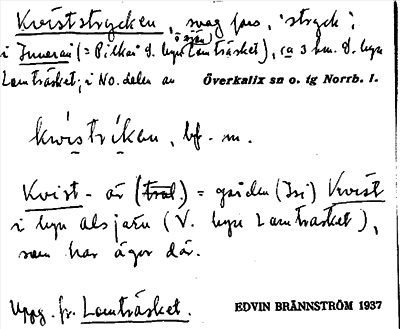 Kviststrycken, svag fors, 'stryck',
i Inneraí (= Pitkai d. byn Lomträsket), ca 3 km. S. byn
Lomträsket, i No. delen av Överkalix sn o. tg Norrb. l.
kwistríkan, bf. m.
Kvist- är (tral.) = gården (Isi) Kvist
i byn Alsjärv (V. byn Lomträsket),
som har ägor där.
Uppg. fr. Lomträsket. EDVIN BRÄNNSTRÖM 1937